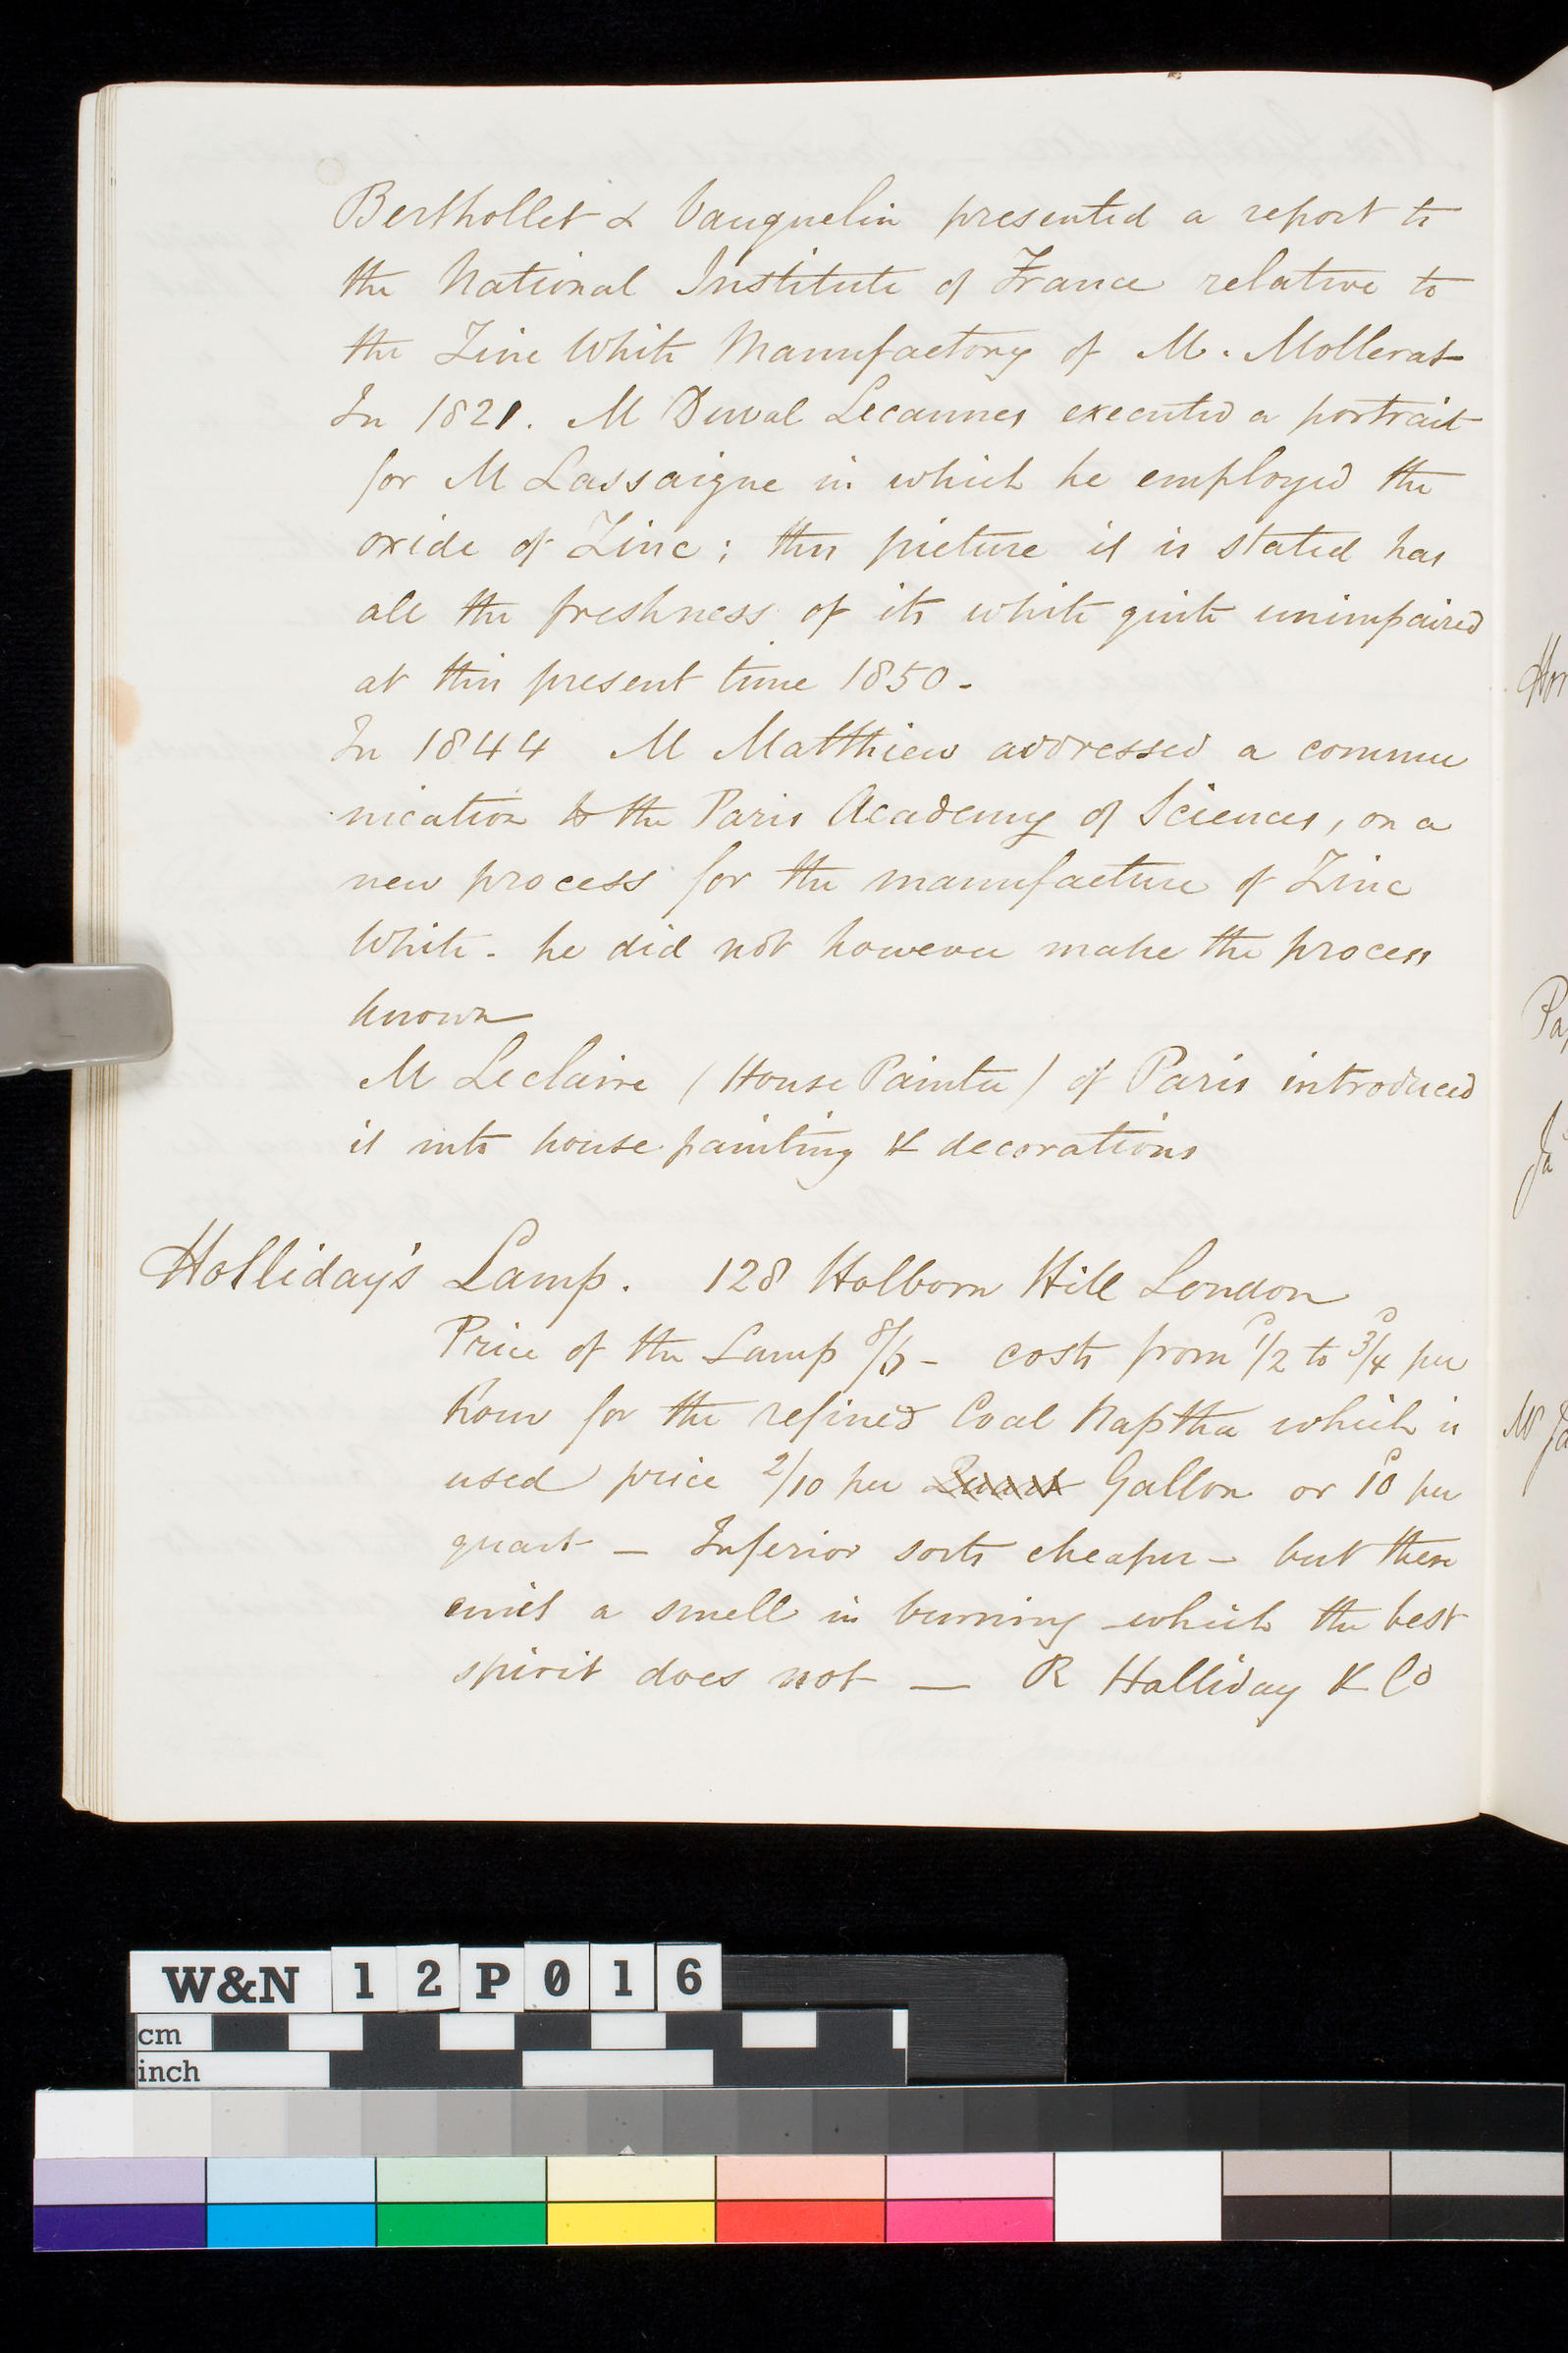 Berthollet & Vauquelin presented a report to
the National Institute of France relative to
the Zinc White Manufactory of M. Mollerat
In 1821. M Duval Lecamnes executed a portrait
for M Lassaigne in which he employed the
oxide of Zinc; this picture it is stated has
all the freshness of its white quite unimpaired
at this present time 1850 -
In 1844 M Matthiew addressed a commu
nication to the Paris Academy of Sciences, on a
new process for the manufacture of Zinc
White - he did not however make the process
known
M Leclaire (House Painter) of Paris introduced
it into house painting & decorations
Holliday's Lamp. 128 Holborn Hill London
Price of the Lamp 8/6 - costs from D 1/2 to D 3/4 per
hour for the refined Coal Naptha which is
used price 2/10 per Quart Gallon or 10D per
quart — Inferior sorts cheaper - but these
emit a smell in burning which the best
spirit does not — R Halliday & Co
Hor
Pa
Ja
W&N 12P016
cm
inch